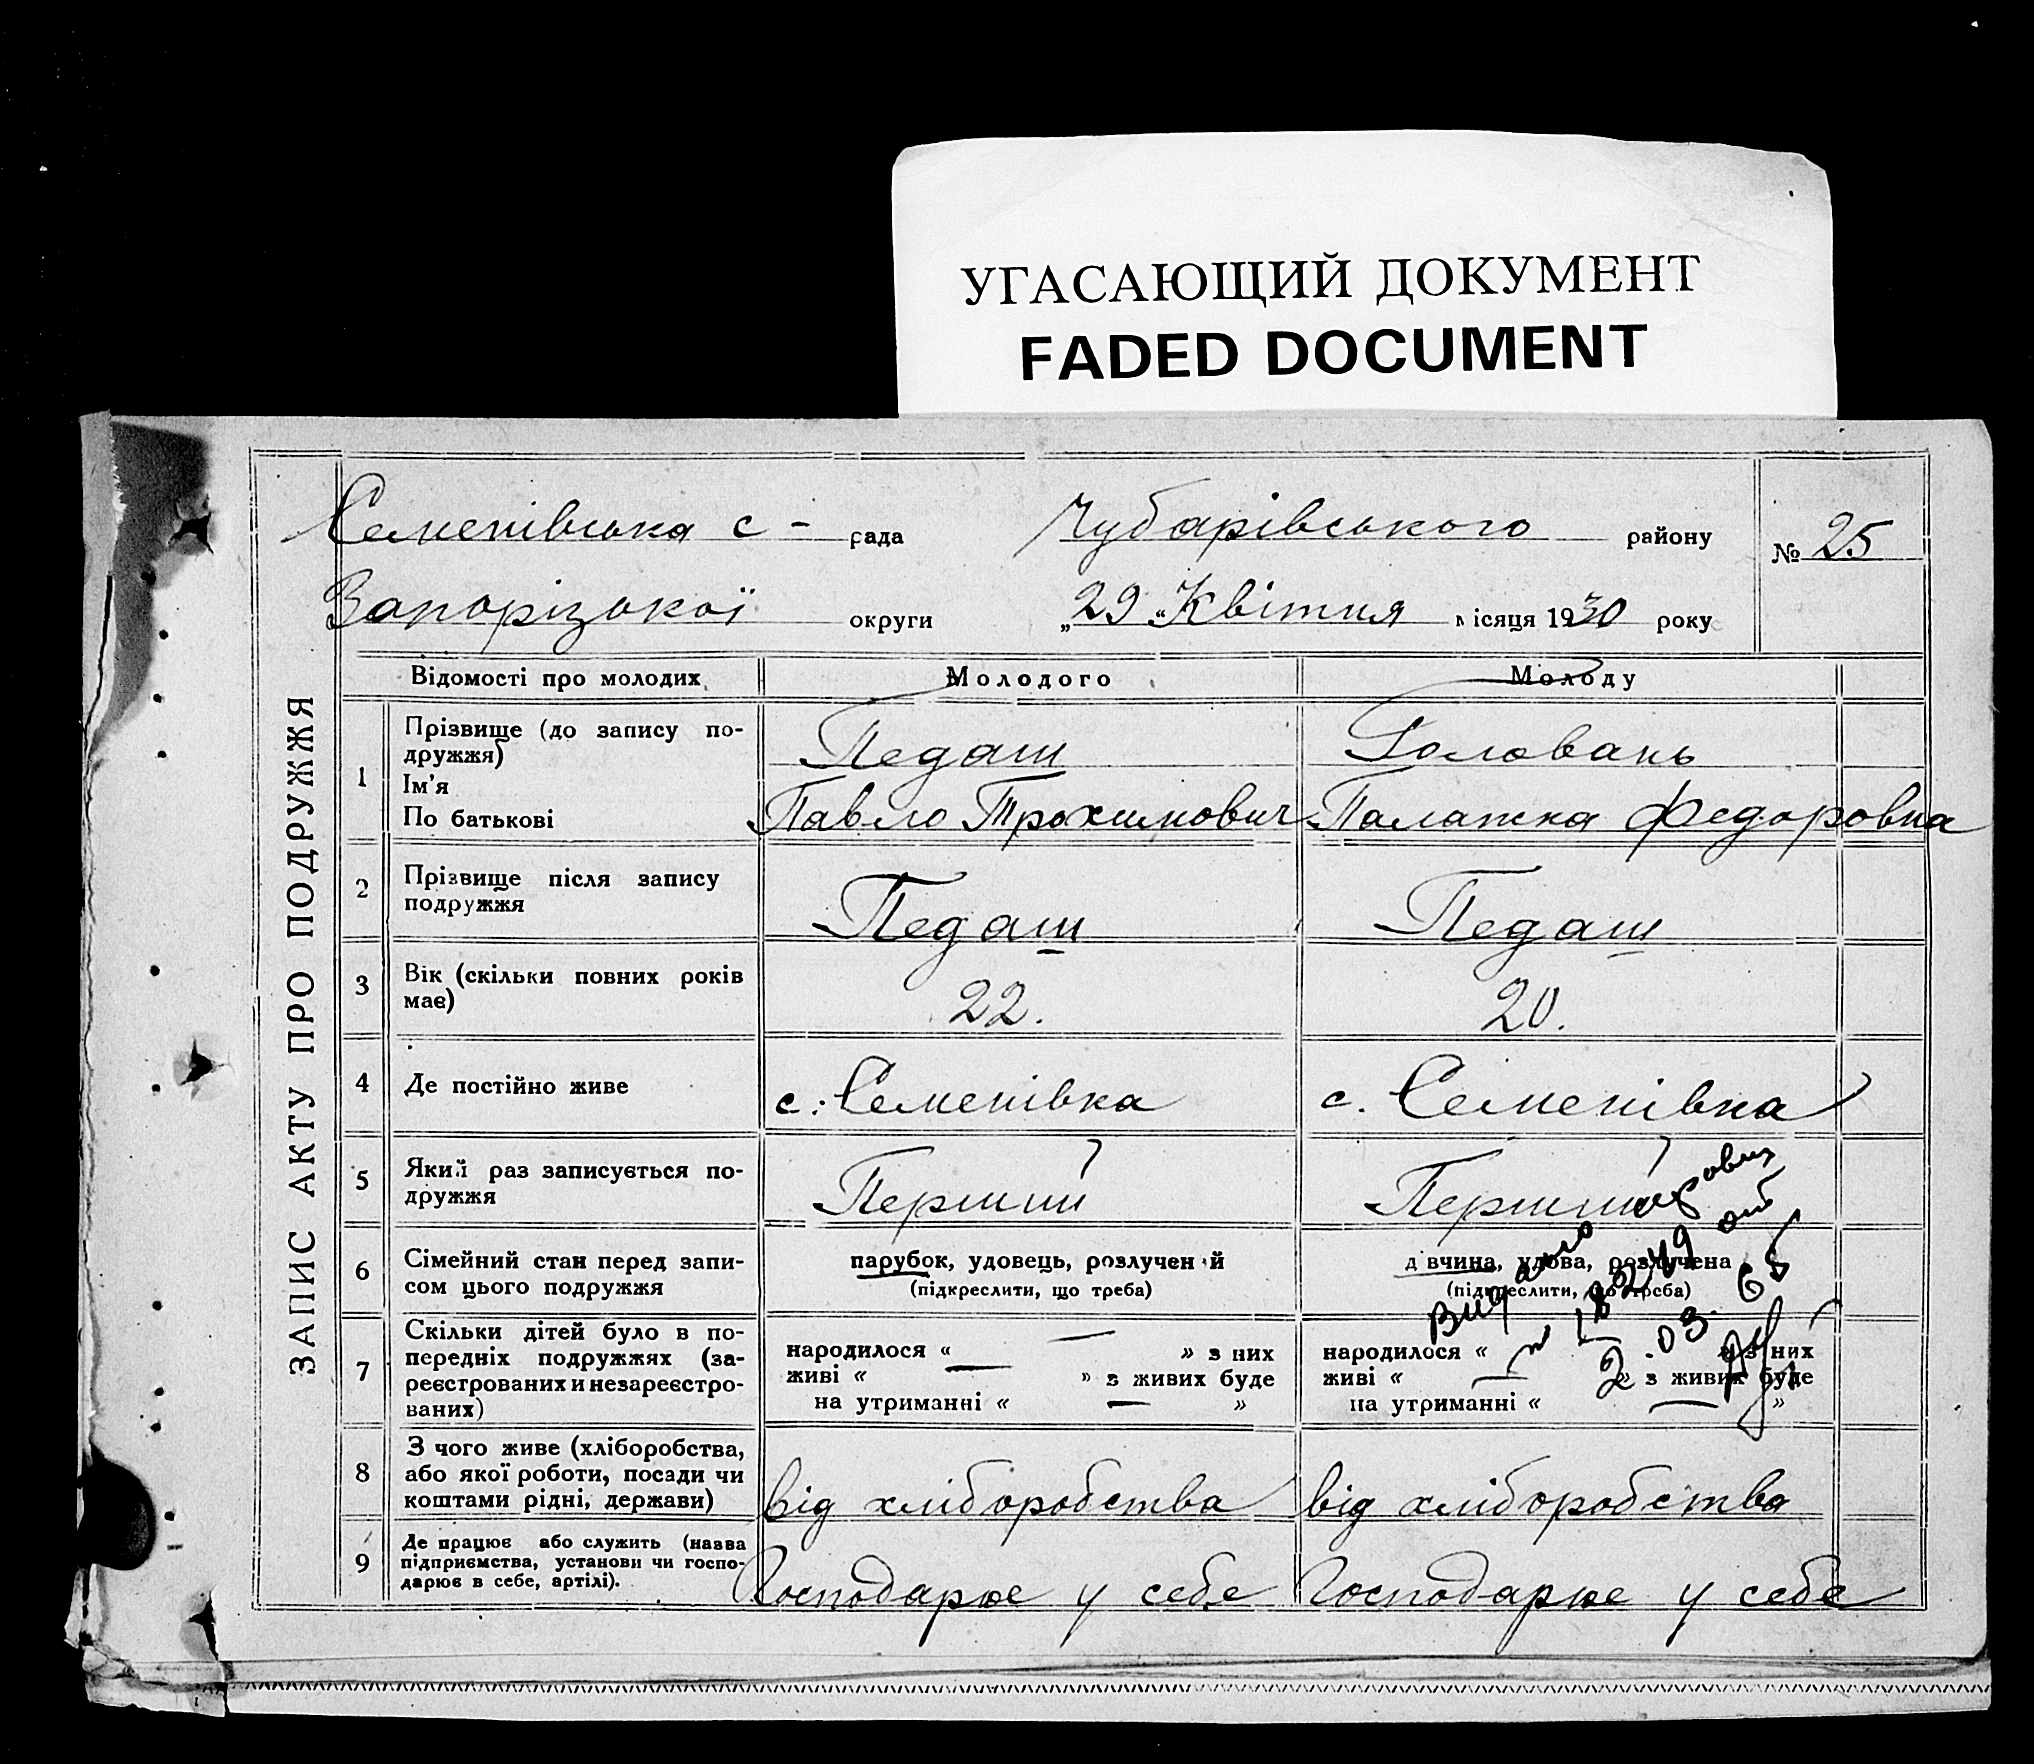 УГАСАЮЩИЙ ДОКУМЕНТ
FADED DOCUMENT
ЗАПИС АКТУ ПРО ПОДРУЖЖЯ
Семенівська с - рада Чубарівського району № 25
Запорізької округи „29“ Квітня місяця 1930 року
Відомості про молодих Молодого Молоду
1 Прізвище (до запису подружжя) Педаш Головань
Ім'я
По батькові Павло Трохимович Палажка Федоровна
2 Прізвище після запису подружжя Педаш Педаш
3 Вік (скільки повних років має) 22. 20.
4 Де постійно живе с. Семенівка с. Семенівка
5 Який раз записується подружжя Перший Перший
6 Сімейний стан перед записом цього подружжя парубок, удовець, розлучений дівчина, удова, розлучена
(підкреслити, що треба) (підкреслити, що треба)
7 Скільки дітей було в попередніх подружжях (зареєстрованих и незареєстрованих)
народилося « — » з них народилося « » з них
живі « — » з живих буде живі « — » з живих буде
на утриманні « — » на утриманні « — »
Видано
от
2.03.65
8 З чого живе (хліборобства, або якої роботи, посади чи коштами рідні, держави) від хліборобства від хліборобства
9 Де працює або служить (назва підприємства, установи чи господарює в себе, артілі). Господарює у себе Господарює у себе